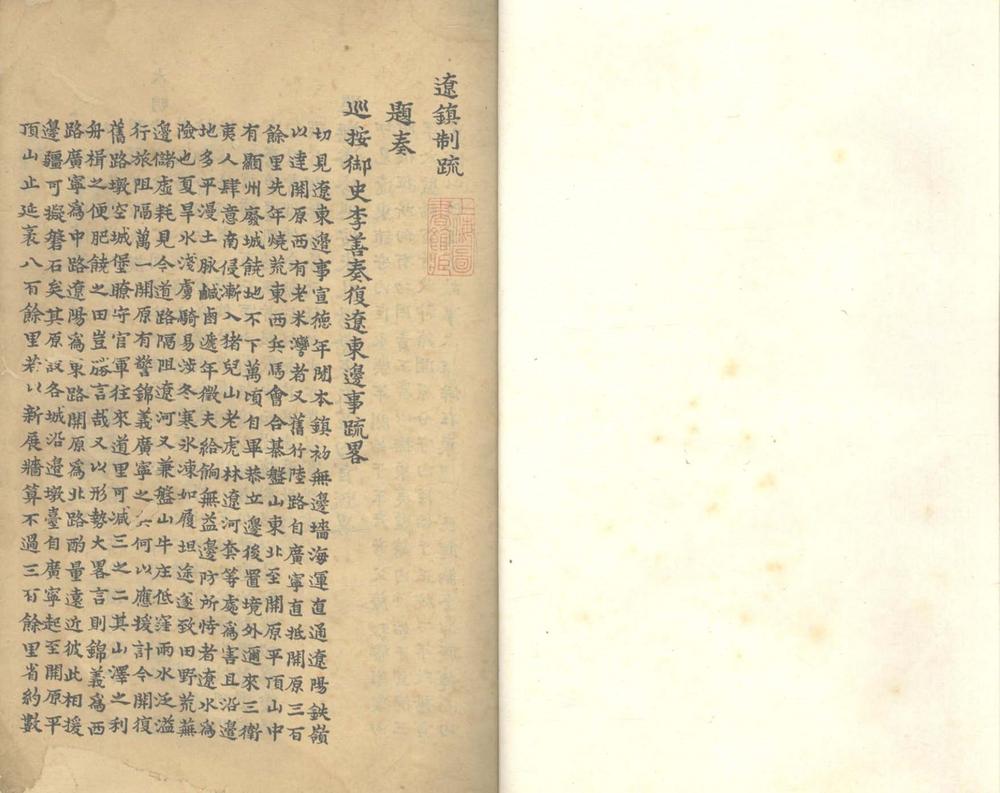 遼鎮制疏
題奏
巡按御史李善奏復遼東邊事疏畧
切見遼東邊事宣德年間本鎮初無邊墻海運直通遼陽鉄嶺
以達開原西有老米灣者又舊行陸路自廣寧直抵開原三百
餘里先年燒荒東西兵馬會合棊盤山東北至開原平頂山中
有顯州廢城饒地不下萬頃自畢恭立邊後置境外邇來三衛
夷人肆意南侵漸入猪兒山老虎林遼河套等處為害且沿邊
地多平漫土脉鹹鹵遞年徵夫給餉無益邊防所恃者遼水為
險也夏旱水淺虜騎易涉冬寒氷凍如履坦途遂致田野荒蕪
邊儲虛耗見今道路隔阻遼河又兼盤山牛庄低窪雨水泛溢
行旅阻隔萬一開原有警錦義廣寧之兵何以應援計今開復
舊路墩空城堡瞭守官軍往來道里可减三之二其山澤之利
舟楫之便肥饒之田豈勝言哉又以形勢大畧言則錦義為西
路廣寧為中路遼陽為東路開原為北路酌量遠近彼此相援
邊疆可擬磐石矣其原設各城沿邊墩臺自廣寧起至開原平
頂山止延袤八百餘里若以新展墻算不過三百餘里省約數